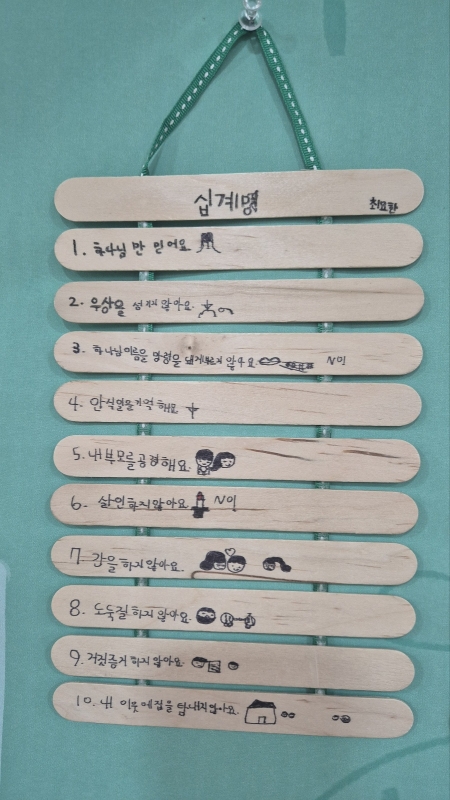 십계명
최요한
1. 하나님만 믿어요
2. 우상을 섬기지 않아요.
3. 하나님이름을 망령을 되게부르지 않아요. No!
4. 안식일을기억 해요.
5. 내부모를공경해요.
6. 살인하지않아요. No!
7 간음하지않아요.
8. 도둑질하지않아요.
9. 거짓증거하지않아요.
10. 내 이웃에집을탐내지않아요.